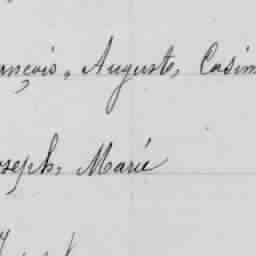 ançois, Auguste, Casim
oseph, Marie